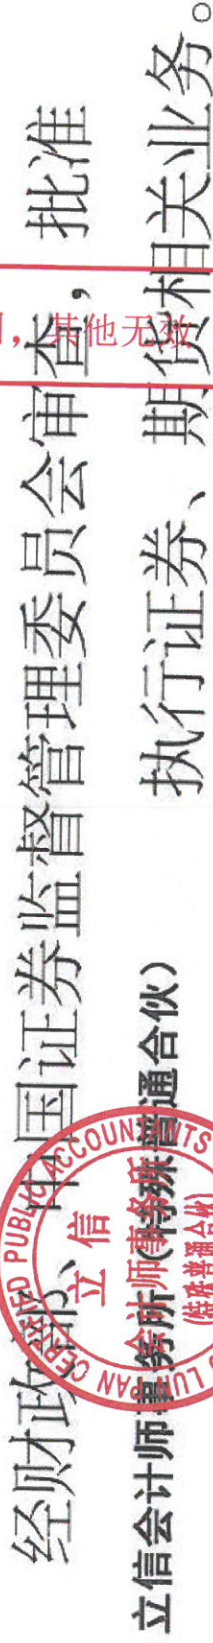 经财政部、中国证券监督管理委员会审查，批准
立信会计师事务所(特殊普通合伙) 执行证券、期货相关业务。
，其他无效
CERTIFIED PUBLIC ACCOUNTANTS
立信
会计师事务所
(特殊普通合伙)
LUNPAN